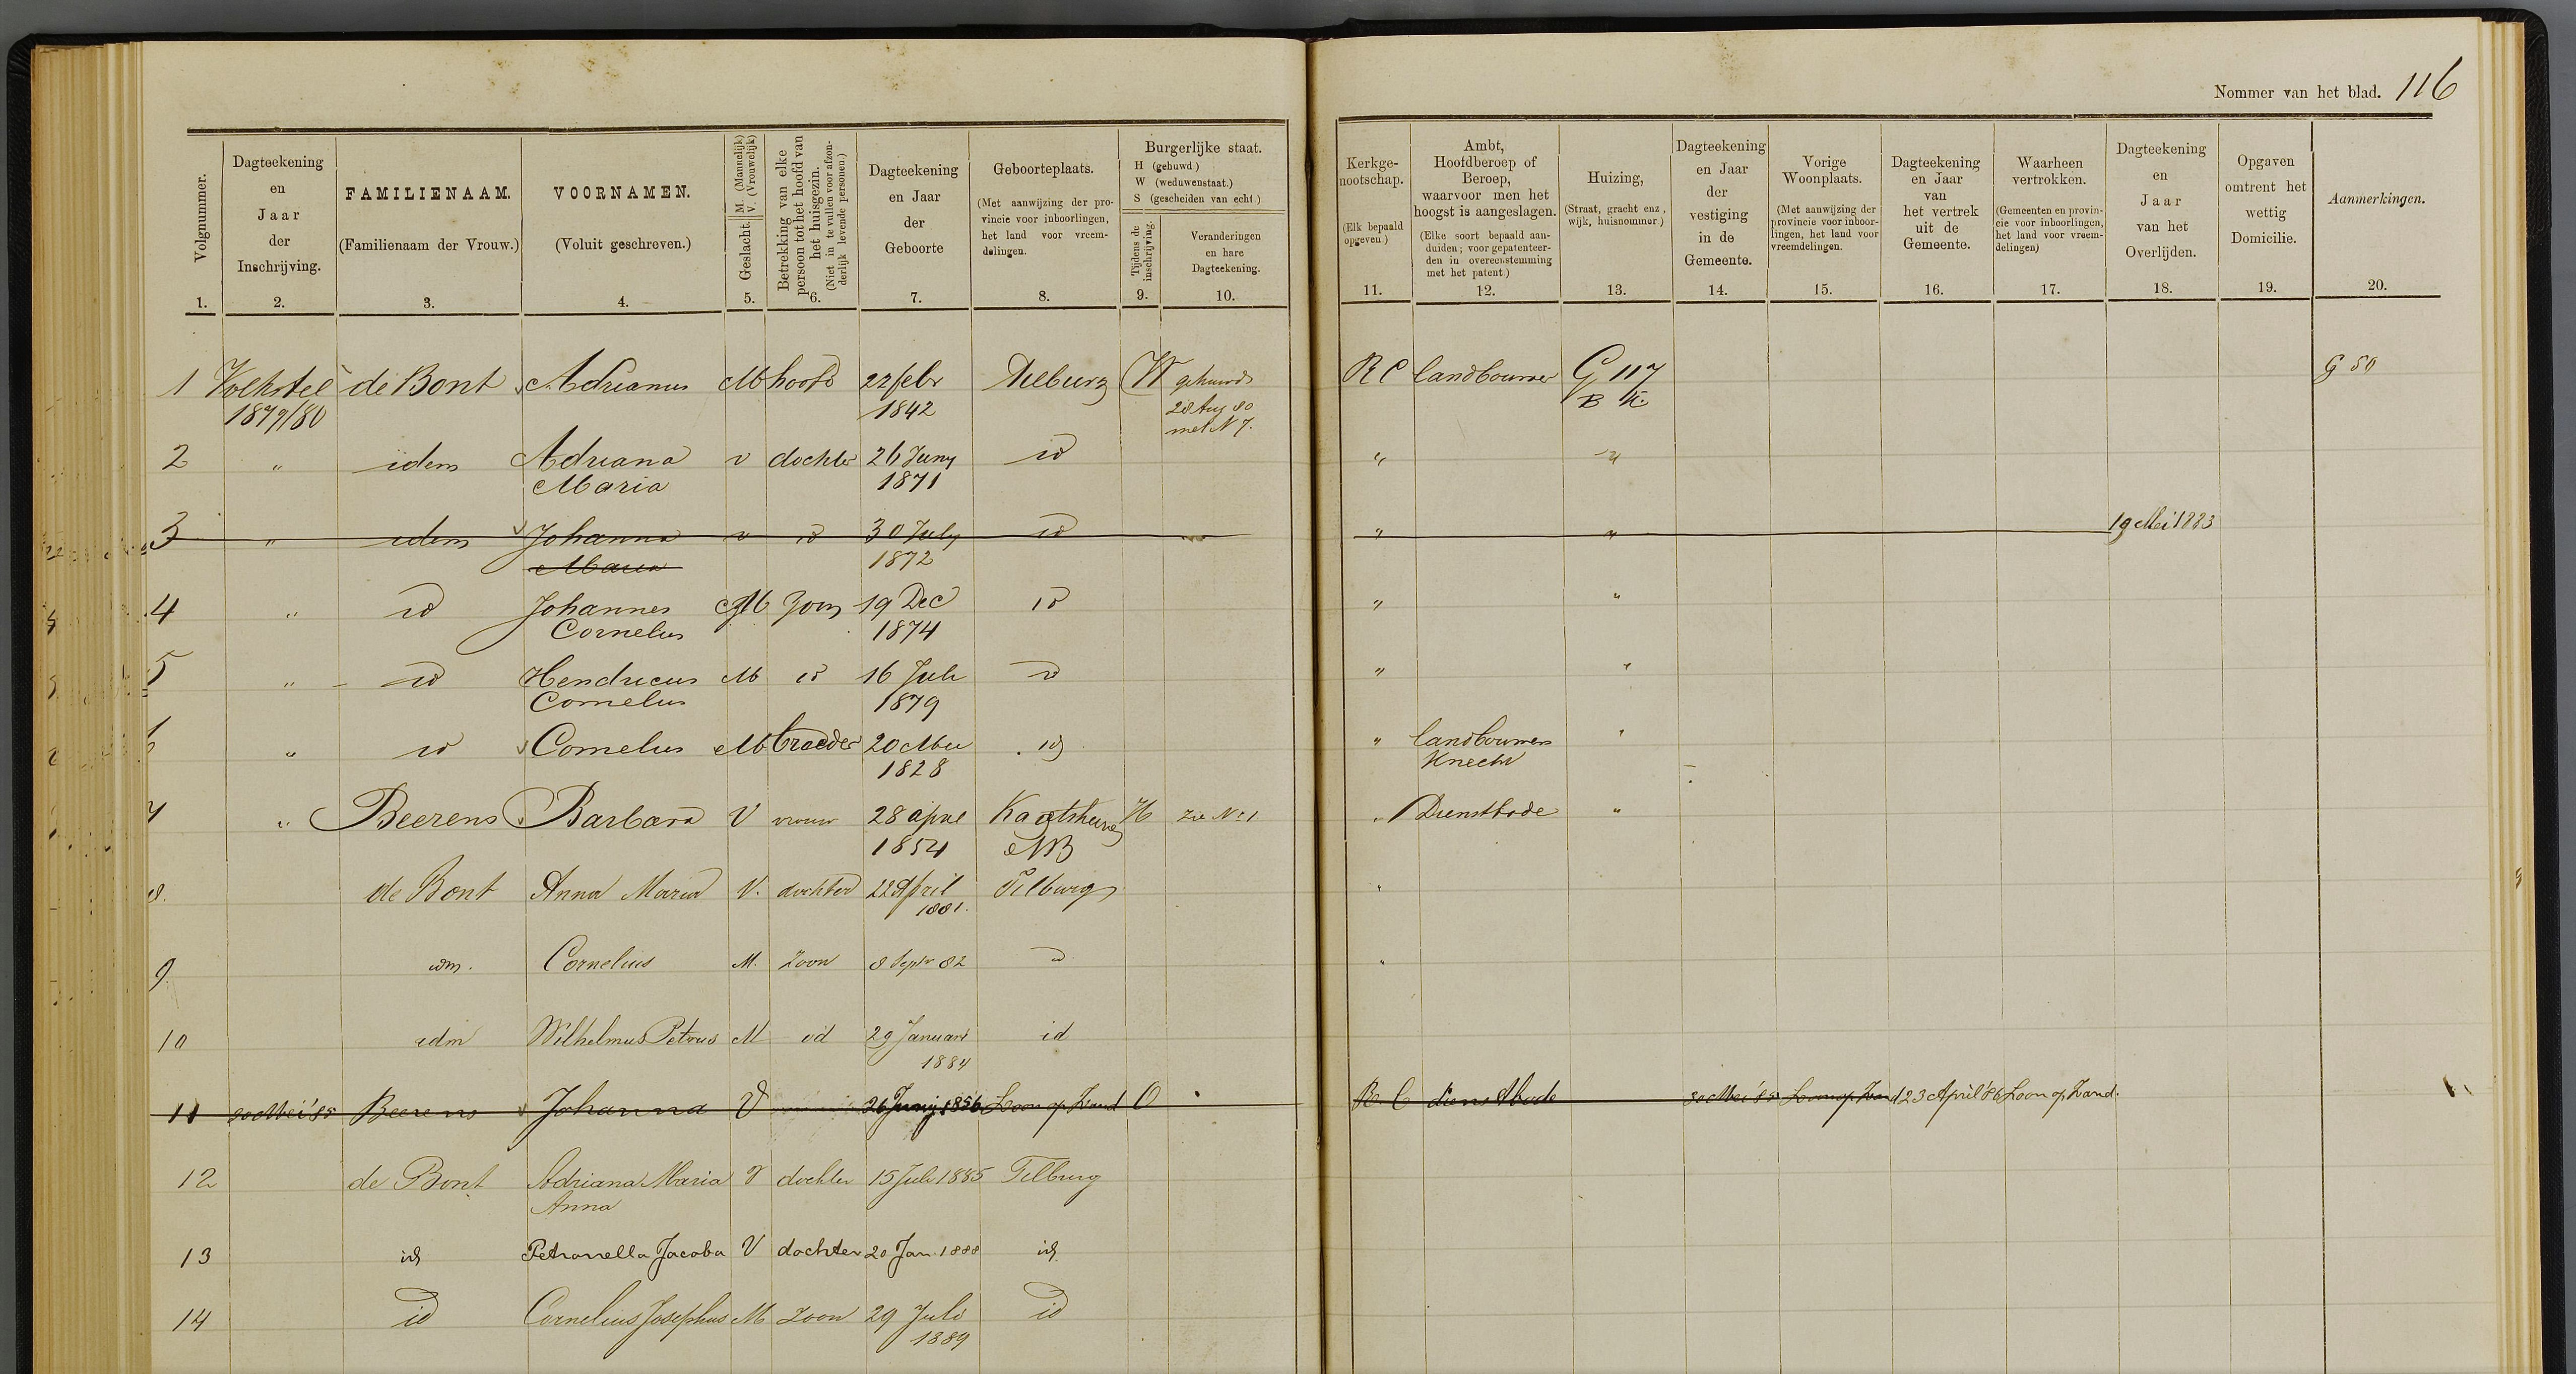 Nommer van het blad. 116
Volgnummer.
1.
Dagteekening
en
Jaar
der
Inschrijving.
2.
FAMILIENAAM.
(Familienaam der Vrouw.)
3.
VOORNAMEN.
(Voluit geschreven.)
4.
Geslacht. M. (Mannelijk)
V. (Vrouwelijk)
5.
Betrekking van elke
persoon tot het hoofd van
het huisgezin.
(Niet in te vullen voor afzon-
derlijk levende personen.)
6.
Dagteekening
en Jaar
der
Geboorte
7.
Geboorteplaats.
(Met aanwijzing der pro-
vincie voor inboorlingen,
het land voor vreem-
delingen.
8.
Burgerlijke staat.
H (gehuwd.)
W (weduwenstaat.)
S (gescheiden van echt.)
Tijdens de
inschrijving.
9.
Veranderingen
en hare
Dagteekening.
10.
Kerkge-
nootschap.
(Elk bepaald
opgeven.)
11.
Ambt,
Hoofdberoep of
Beroep,
waarvoor men het
hoogst is aangeslagen.
(Elke soort bepaald aan-
duiden; voor gepatenteer-
den in overeenstemming
met het patent.)
12.
Huizing,
(Straat, gracht enz,
wijk, huisnommer)
13.
Dagteekening
en Jaar
der
vestiging
in de
Gemeente.
14.
Vorige
Woonplaats.
(Met aanwijzing der
provincie voor inboor-
lingen, het land voor
vreemdelingen.
15.
Dagteekening
en Jaar
van
het vertrek
uit de
Gemeente.
16.
Waarheen
vertrokken.
(Gemeenten en provin-
cie voor inboorlingen,
het land voor vreem-
delingen)
17.
Dagteekening
en
Jaar
van het
Overlijden.
18.
Opgaven
omtrent het
wettig
Domicilie.
19.
Aanmerkingen.
20.
1 Volkstel de Bont Adrianus M hoofd 22 febr Tilburg W gehuwd RC landbouwer G 117 G 50
1879/80 1842 28 Aug 80 B K.
met N 7.
2 " idem Adriana v dochter 26 Juny id " "
Maria 1871
3 " idem Johanna v id 30 July id " " 19 Mei 1883
Maria 1872
4 " id Johannes M Zoon 19 Dec id " "
Cornelus 1874
5 " id Hendricus M id 16 Juli id " "
Cornelus 1879
6 " id Cornelus M broeder 20 Mei id " landbouwers "
1828 Knecht
7 " Beerens Barbara V vrouw 28 april Kaatsheuvel H zie No 1 " Dienstbode "
1854 NB
8. de Bont Anna Maria V. dochter 22 April Tilburg "
1881.
9. idm. Cornelius M. Zoon 8 Septr 82 id "
10 idm Wilhelmus Petrus M id 29 Januari id
1884
11 30 Mei '85 Beerens Johanna V 26 Junij 1856 Loon op Zand O R. C dienstbode 30 Mei '85 Loon op Zand 23 April '86 Loon op Zand.
12 de Bont Adriana Maria V dochter 15 Juli 1885 Tilburg
Anna
13 id Petronella Jacoba V dochter 20 Jan. 1888 id
14 id Cornelius Josephus M Zoon 29 Juli id
1889